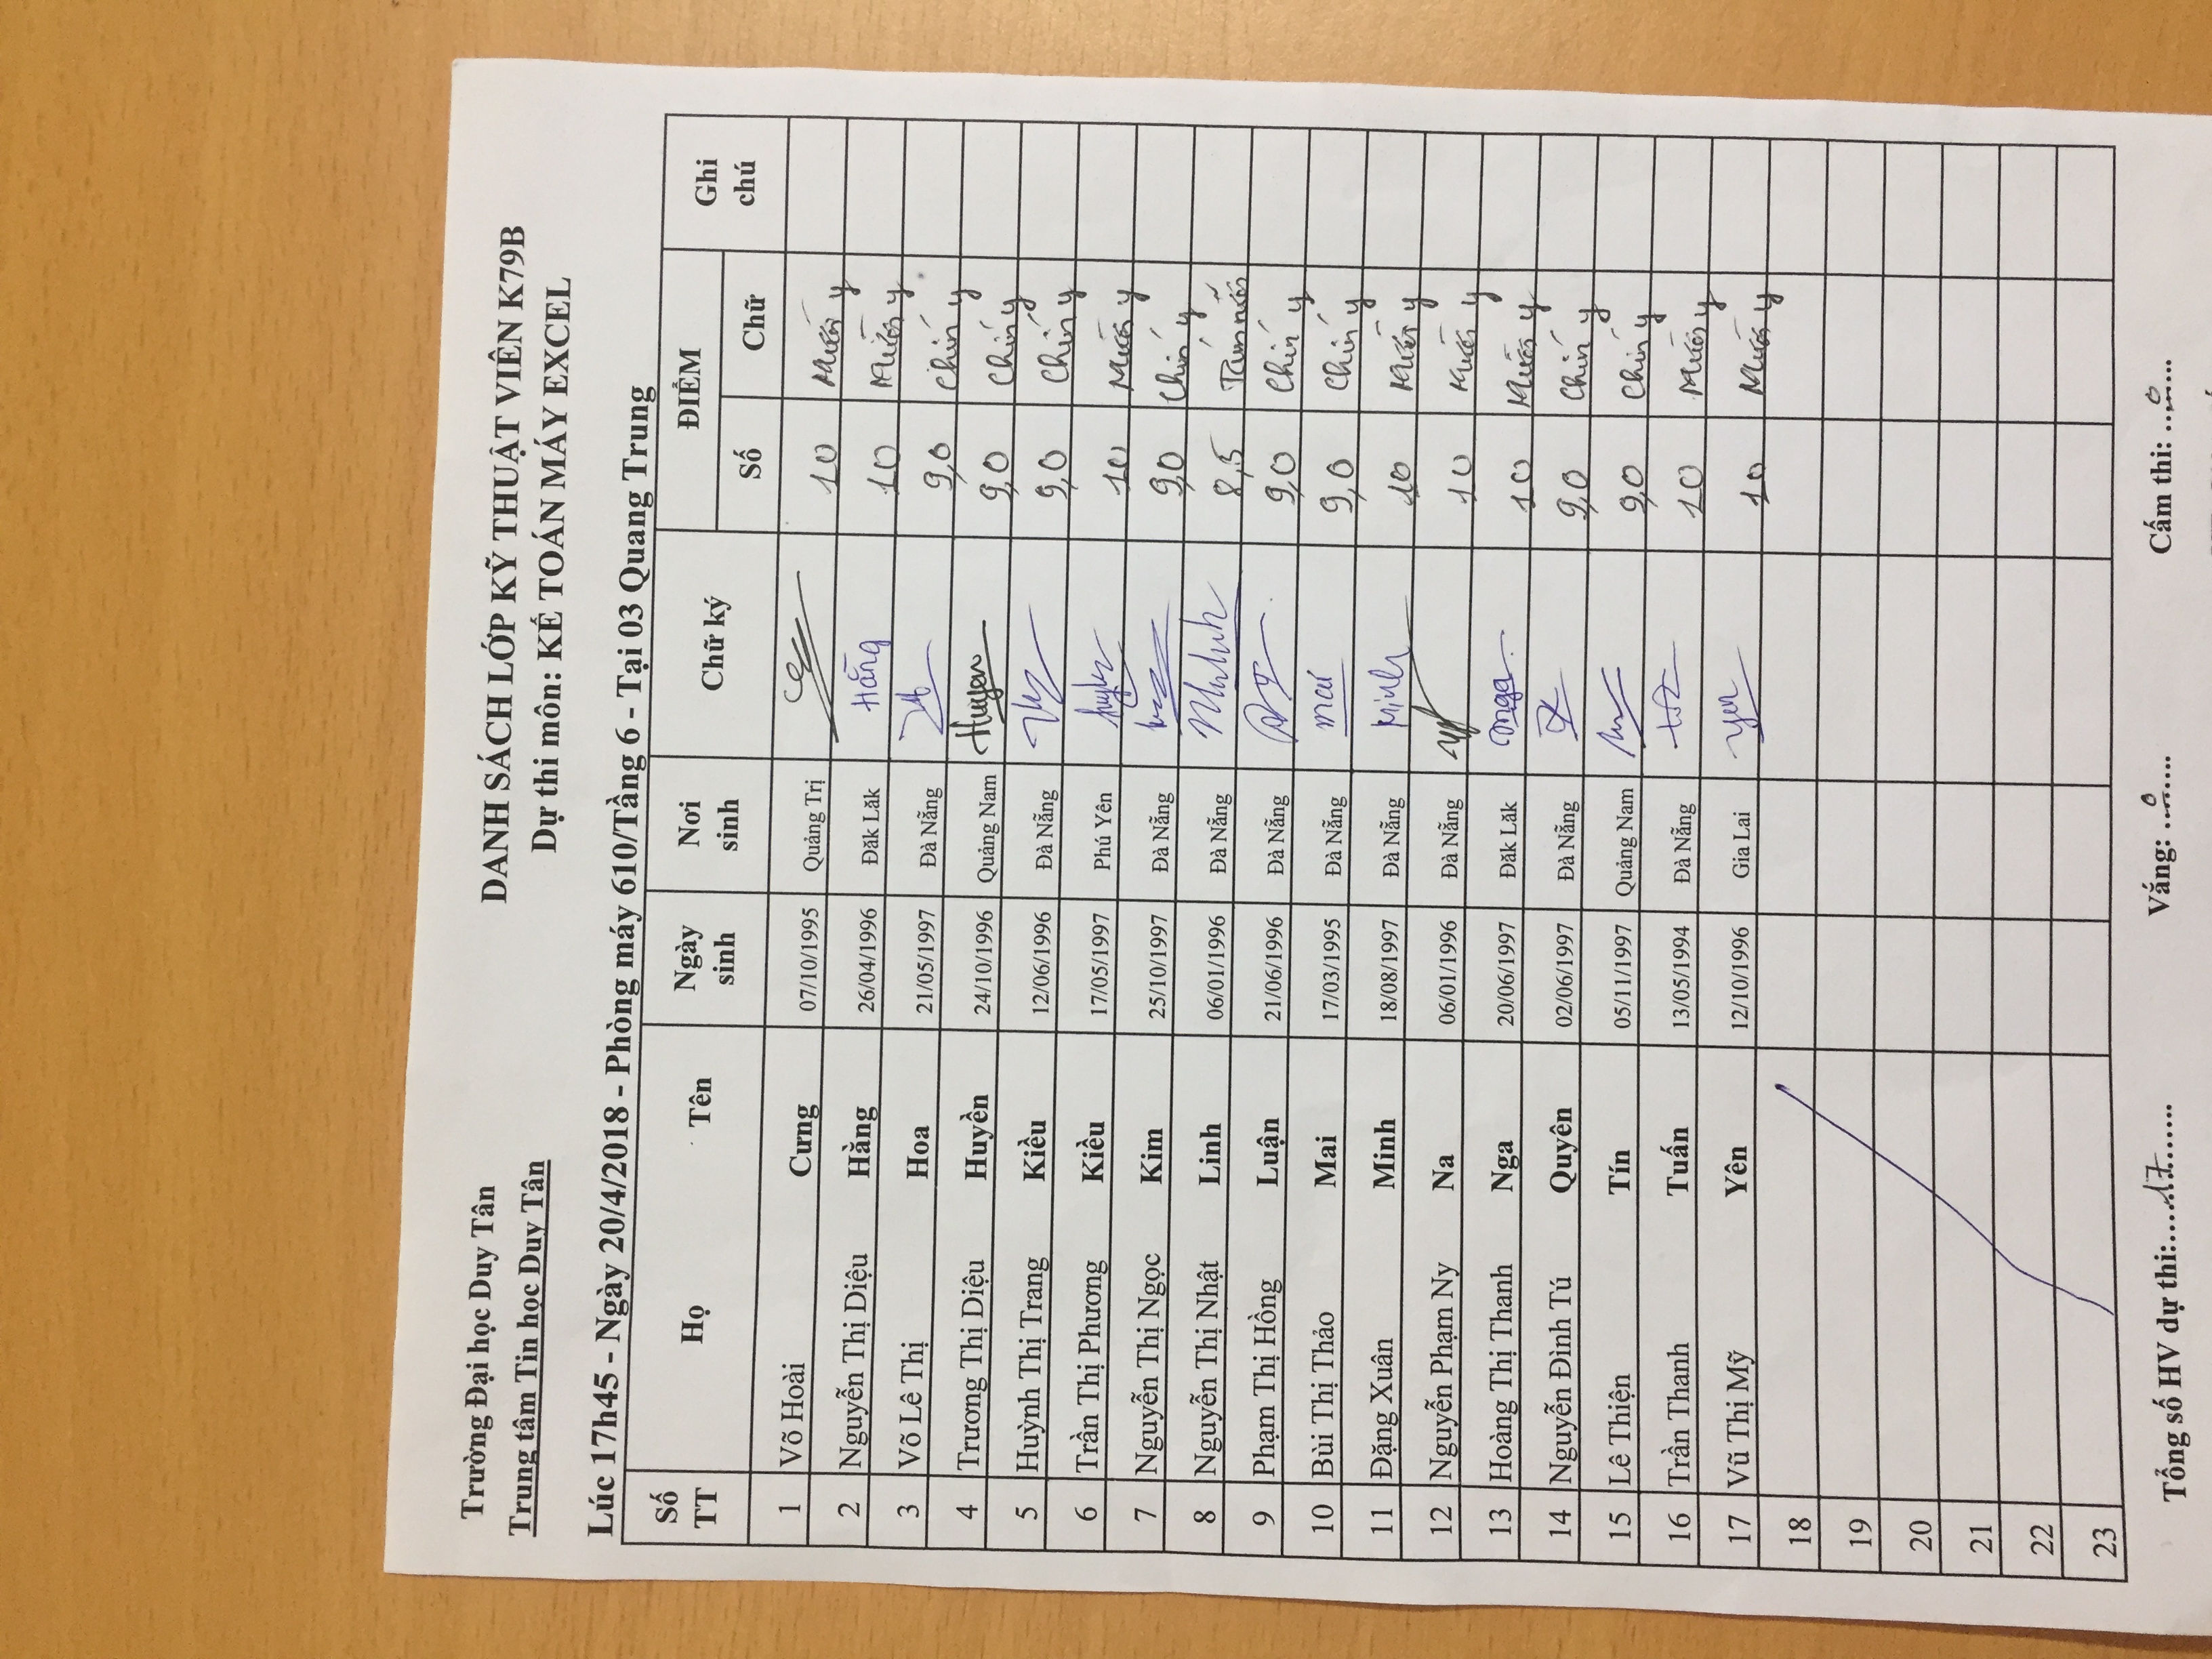 Trường Đại học Duy Tân
Trung tâm Tin học Duy Tân
DANH SÁCH LỚP KỸ THUẬT VIÊN K79B
Dự thi môn: KẾ TOÁN MÁY EXCEL
Lúc 17h45 - Ngày 20/4/2018 - Phòng máy 610/Tầng 6 - Tại 03 Quang Trung
Số TT Họ Tên Ngày sinh Nơi sinh Chữ ký ĐIỂM Ghi chú
Số Chữ
1 Võ Hoài Cưng 07/10/1995 Quảng Trị 10 Mười y
2 Nguyễn Thị Diệu Hằng 26/04/1996 Đăk Lăk Hằng 10 Mười y
3 Võ Lê Thị Hoa 21/05/1997 Đà Nẵng 9,0 Chín y
4 Trương Thị Diệu Huyền 24/10/1996 Quảng Nam Huyen 9,0 Chín y
5 Huỳnh Thị Trang Kiều 12/06/1996 Đà Nẵng 9,0 Chín y
6 Trần Thị Phương Kiều 17/05/1997 Phú Yên 10 Mười y
7 Nguyễn Thị Ngọc Kim 25/10/1997 Đà Nẵng 9,0 Chín y
8 Nguyễn Thị Nhật Linh 06/01/1996 Đà Nẵng 8,5 Tám rưỡi
9 Phạm Thị Hồng Luận 21/06/1996 Đà Nẵng 9,0 Chín y
10 Bùi Thị Thảo Mai 17/03/1995 Đà Nẵng mai 9,0 Chín y
11 Đặng Xuân Minh 18/08/1997 Đà Nẵng Minh 10 Mười y
12 Nguyễn Phạm Ny Na 06/01/1996 Đà Nẵng 10 Mười y
13 Hoàng Thị Thanh Nga 20/06/1997 Đăk Lăk Nga 10 Mười y
14 Nguyễn Đình Tú Quyên 02/06/1997 Đà Nẵng 9,0 Chín y
15 Lê Thiện Tín 05/11/1997 Quảng Nam 9,0 Chín y
16 Trần Thanh Tuấn 13/05/1994 Đà Nẵng 10 Mười y
17 Vũ Thị Mỹ Yên 12/10/1996 Gia Lai yen 10 Mười y
18
19
20
21
22
23
Tổng số HV dự thi:....17....... Vắng: ...0.... Cấm thi: ...0....